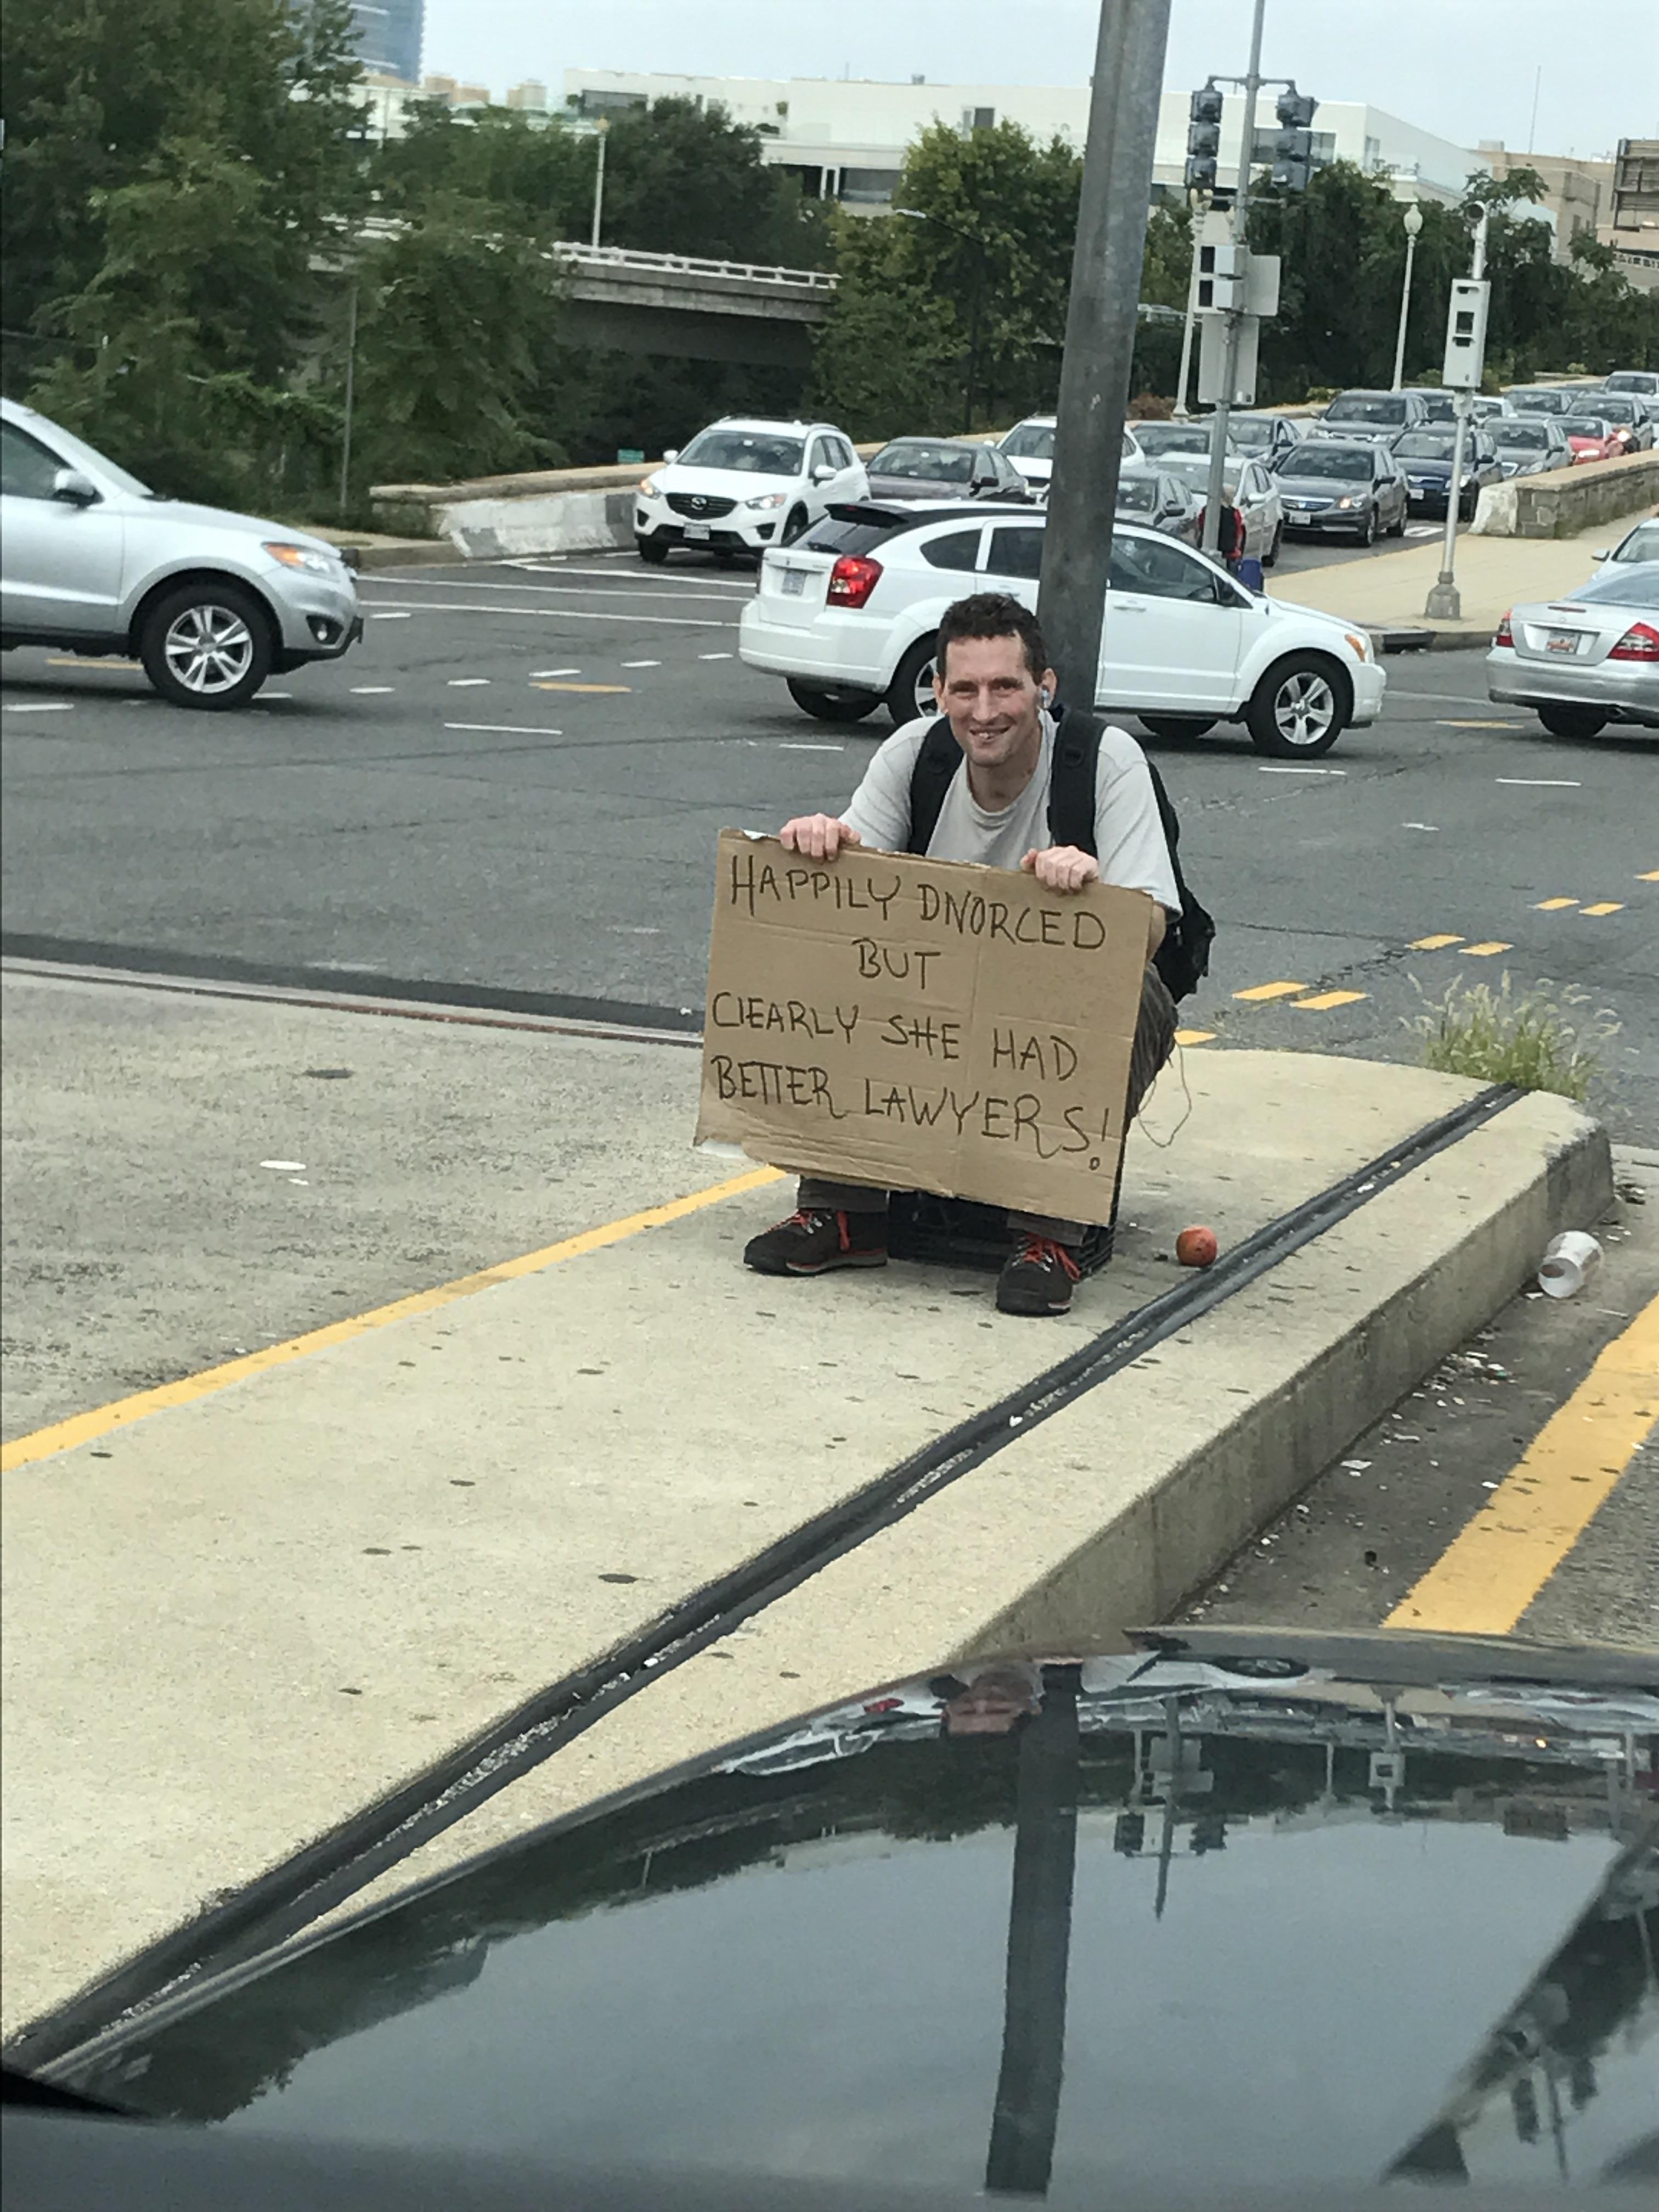 HAPPILY DIVORCED
BUT
CLEARLY SHE HAD
BETTER LAWYERS!